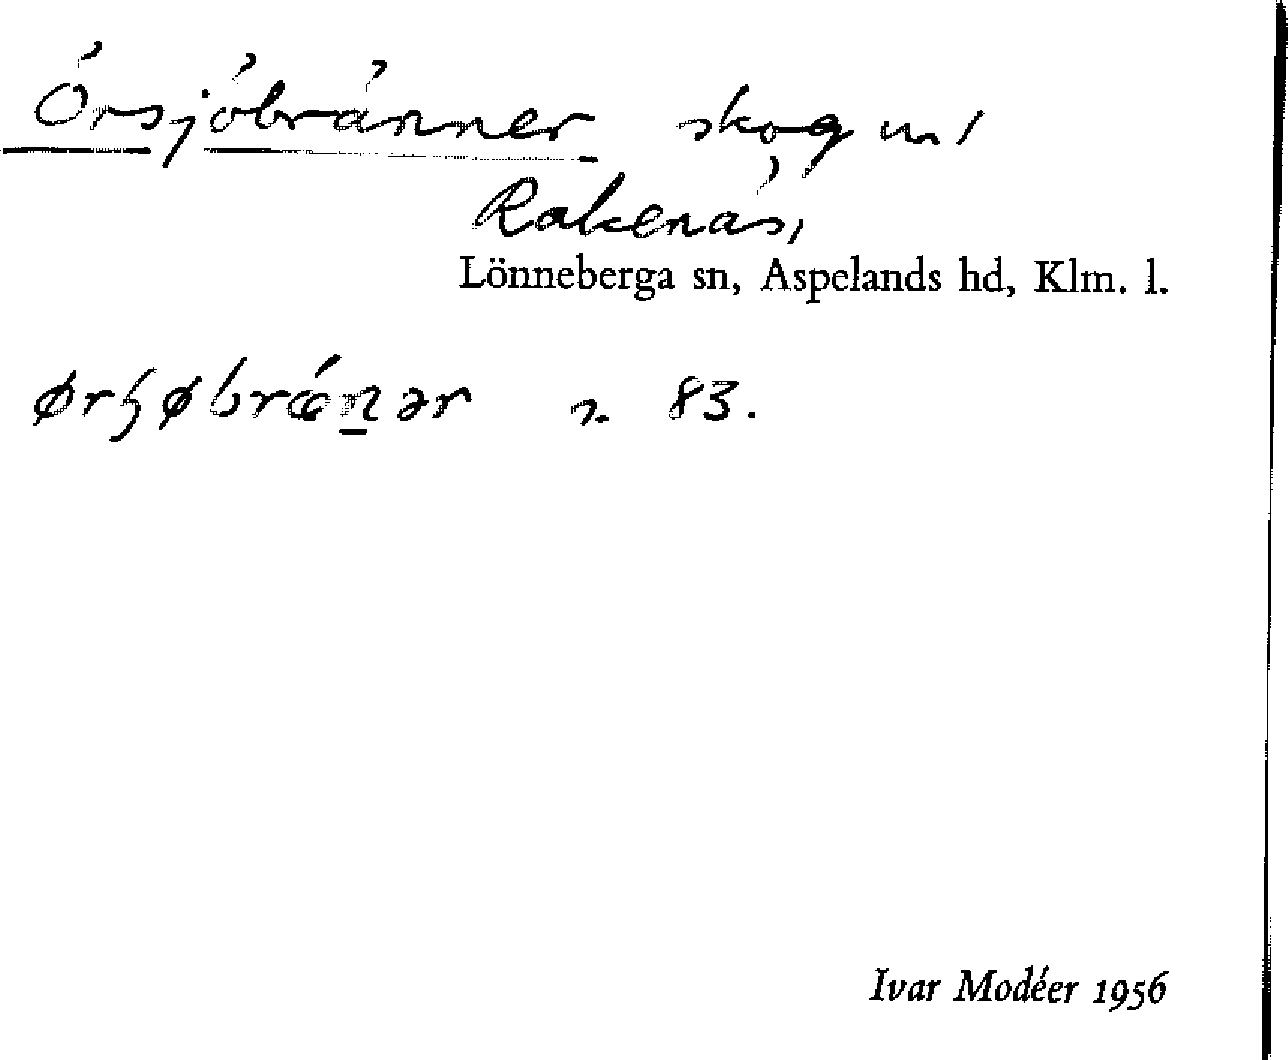 Örsjöbränner skog u/
Rakenäs,
Lönneberga sn, Aspelands hd, Klm. l.
ørʃøbrǽnər n. 83.
Ivar Modéer 1956